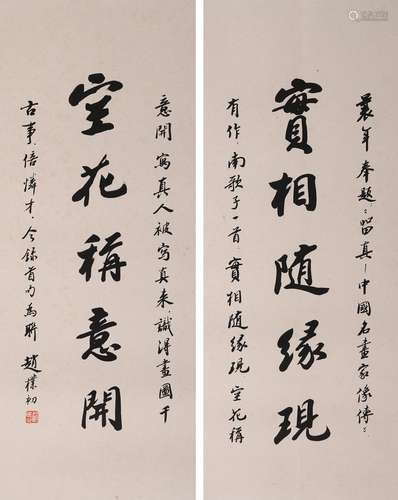 曩年奉題《留真—中國名畫家像傳》
實相随緣現
有作南歌子一首：實相随緣現，空花稱
意開。寫真人被寫真來，識得畫圖千
空花稱意開
古事，倍憐才。今錄首句為聯 趙樸初